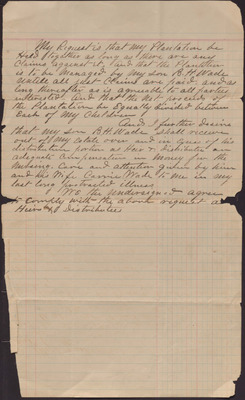 My Request is that my Plantation be
held together as long as there are any
Claims against it, and that the Plantation
is to be Managed by my son B.H. Wade
untill all just Claims are paid, and as
long thereafter as is agreeable to all parties
interested and that the net proceeds of
the Plantation be Equally divided between
Each of my Children
And I further desire
that my son B.H. Wade shall receive
out of my Estate over and in lines of his
distributive portion as Heir & Distributee an
adequate Compensation in Money for the
Nursing, Care and attention given by him
and his Wife Carrie Wade to me in my
last long protracted illness
We the undersigned agree
to Comply with the above request as
Heirs & Distributees